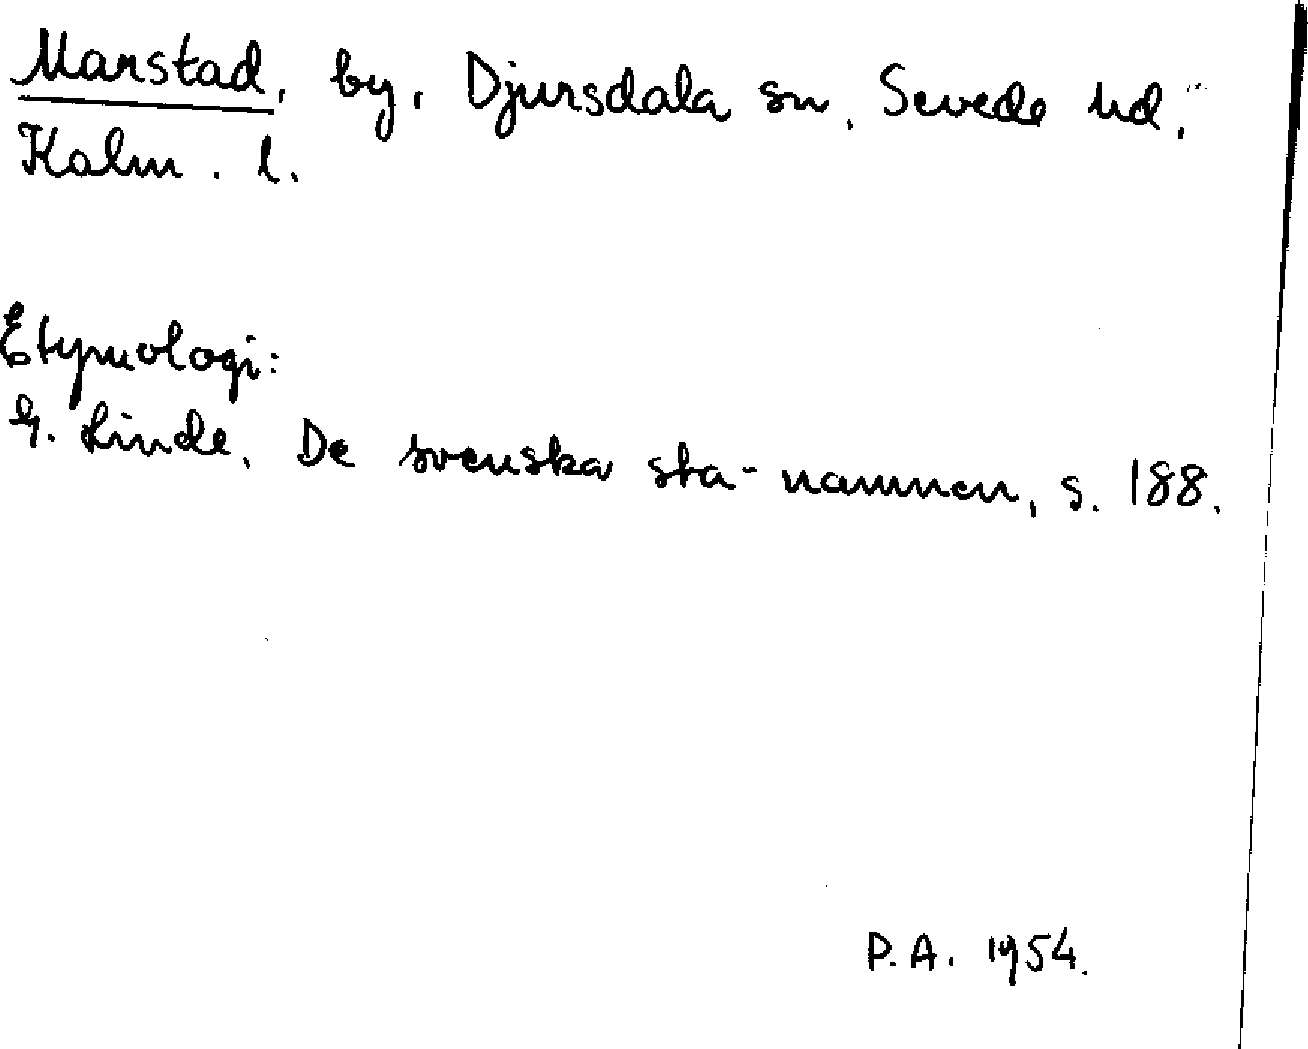 Manstad, by, Djursdala sn, Sevede hd,
Kalm. l.
Etymologi:
G. Linde, De svenska sta-namnen, s. 188.
P.A. 1954.